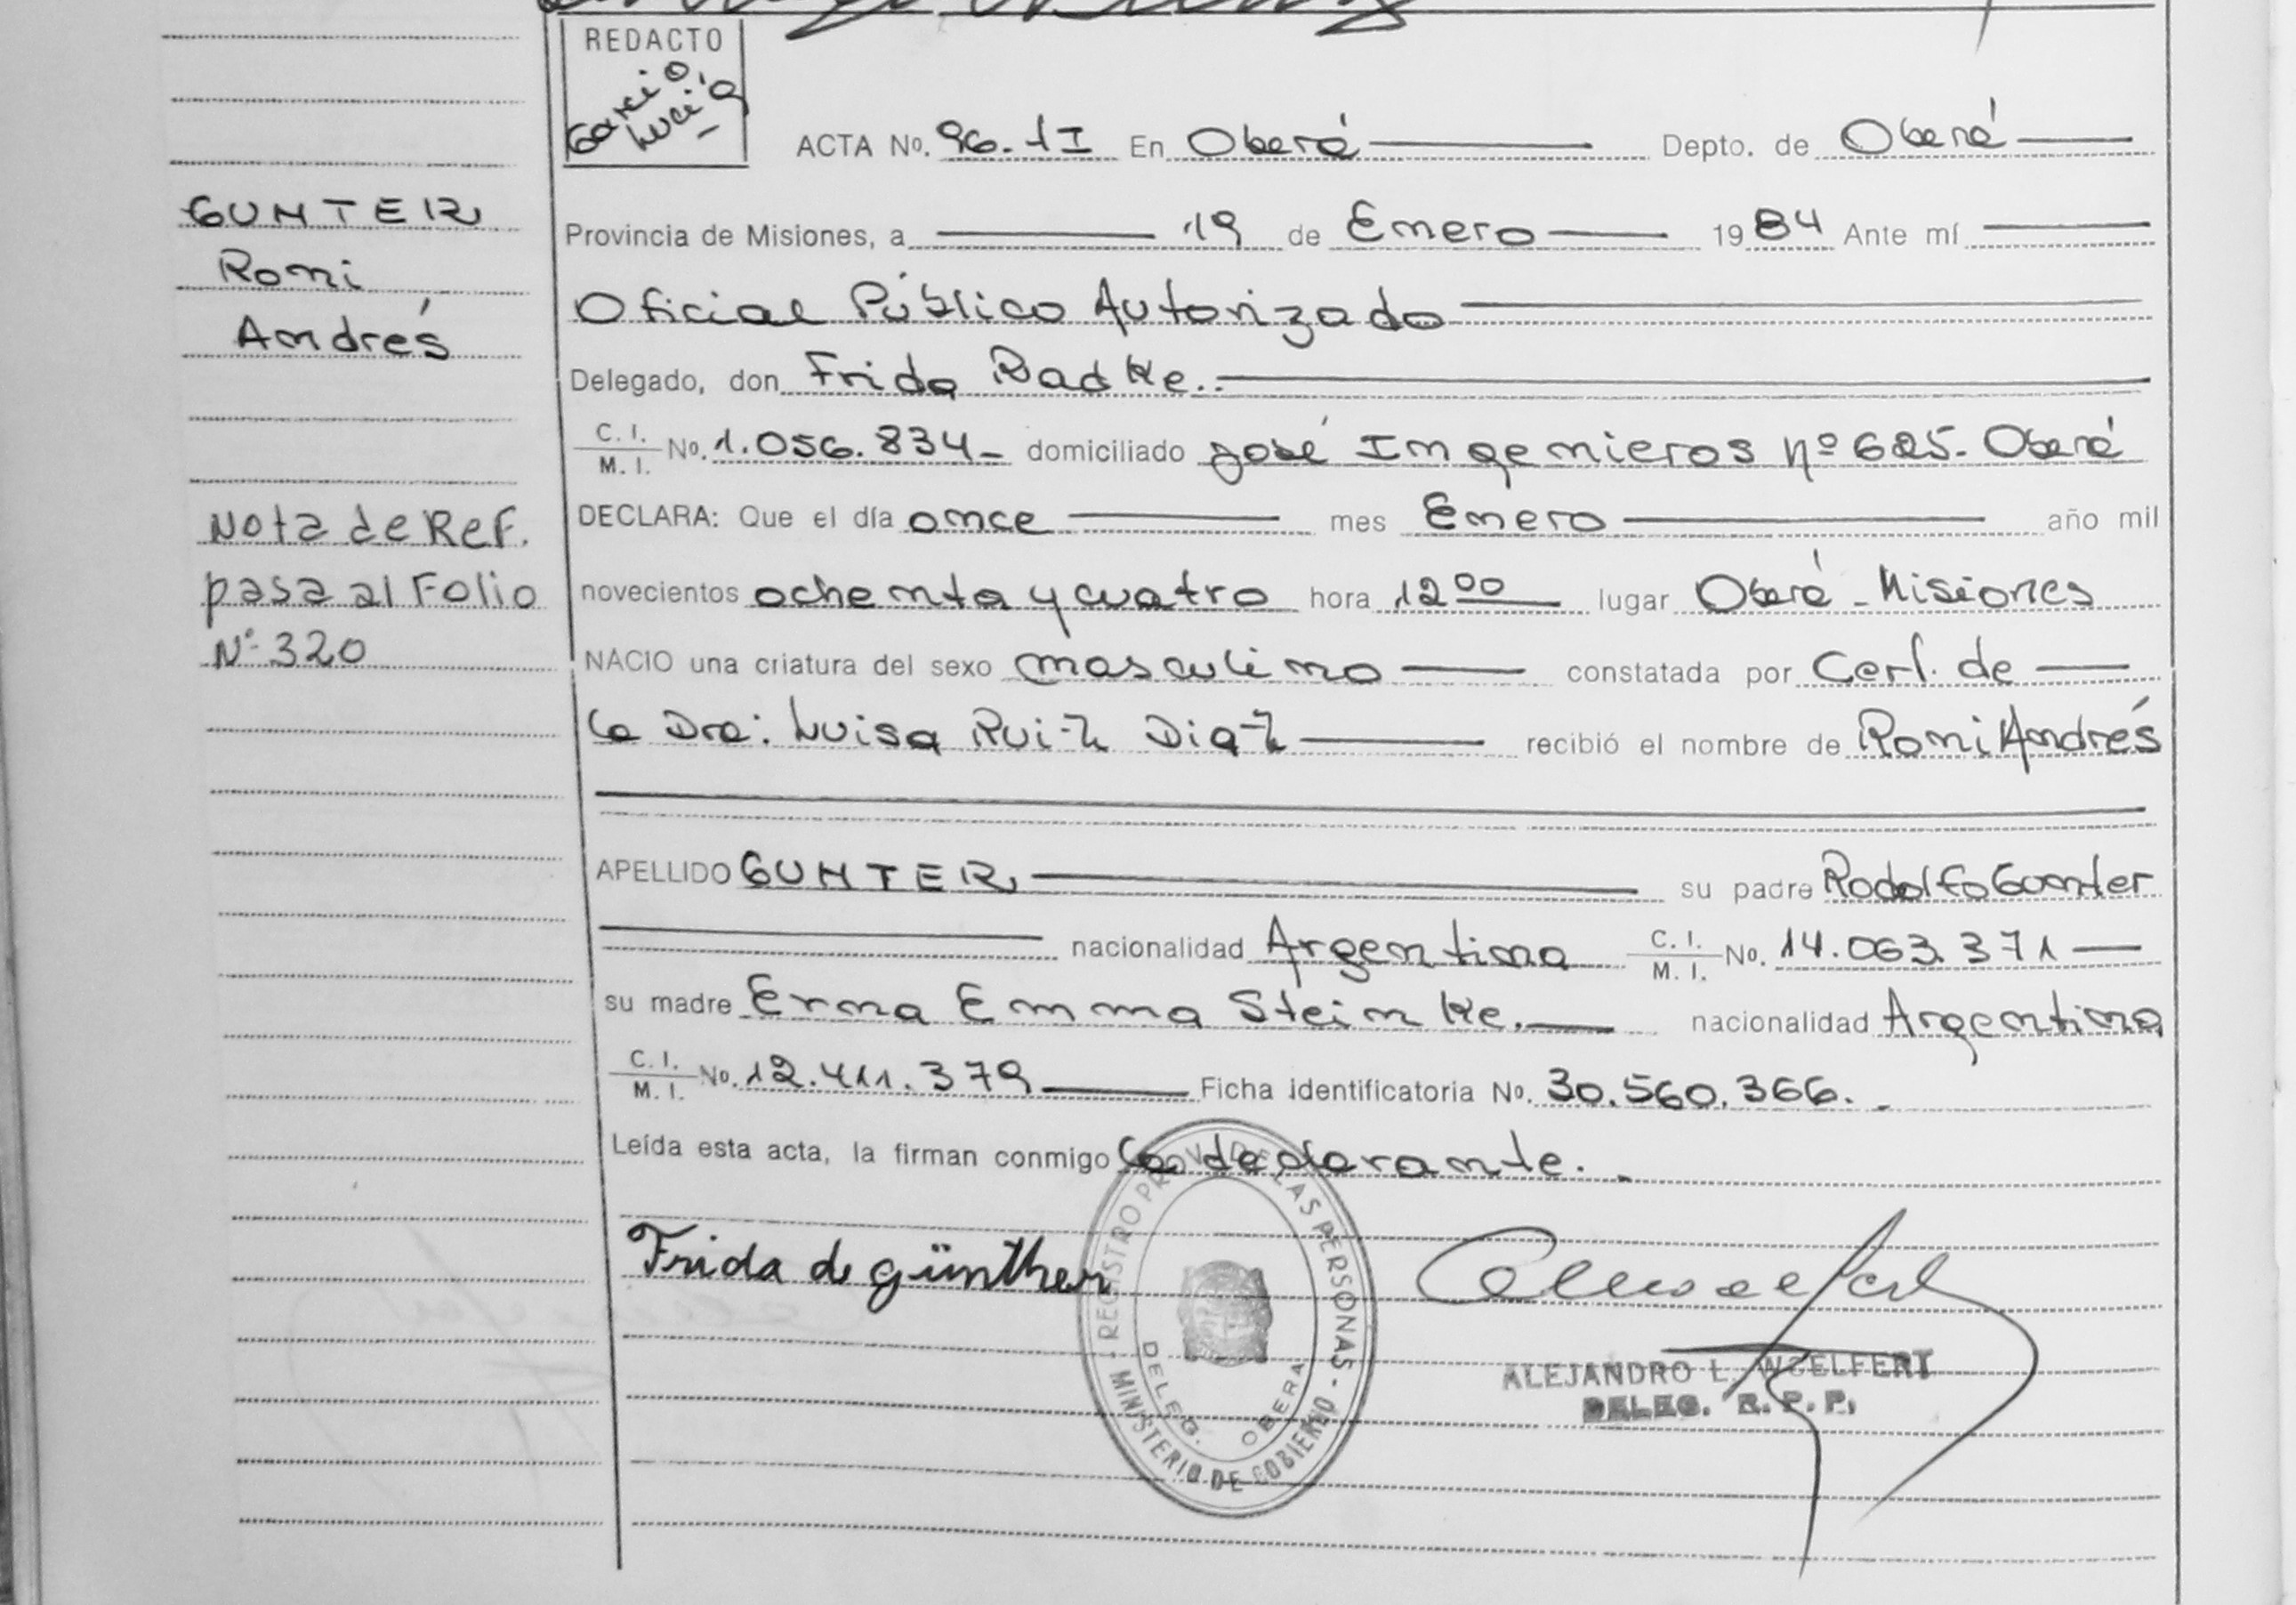 REDACTO
Garcia, Lucia
ACTA No. 96. 1I En Oberá Depto. de Oberá
GUNTER
Roni
Andrés
Provincia de Misiones, a 19 de Enero 1984 Ante mí
Oficial Público Autorizado
Delegado, don Frida Radke.
C. I. / M. I. No. 1.056.834 domiciliado José Ingenieros nº 625. Oberá
Nota de Ref.
pasa al Folio
Nº 320
DECLARA: Que el día once mes Enero año mil
novecientos ochenta y cuatro hora 12 00 lugar Oberá - Misiones
NACIO una criatura del sexo masculino constatada por Cert. de
la Dra: Luisa Ruiz Diaz recibió el nombre de Roni Andrés
APELLIDO GUNTER su padre Rodolfo Gunter
nacionalidad Argentina C. I. / M. I. No. 14.063.371
su madre Erna Emma Steinke. nacionalidad Argentina
C. I. / M. I. No. 12.411.379 Ficha identificatoria No. 30.560.366.
Leída esta acta, la firman conmigo la declarante.
Frida de günther
REGISTRO PROV. DE LAS PERSONAS - MINISTERIO DE GOBIERNO
DELEG. OBERA
ALEJANDRO L. WOELFERT
DELEG. R. P. P.